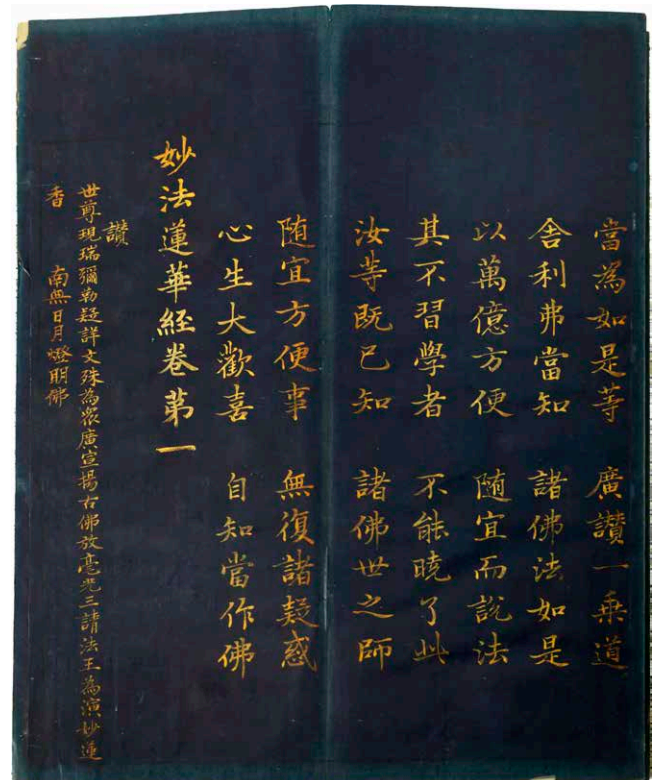 當為如是等 廣讚一乗道
舍利弗當知 諸佛法如是
以萬億方便 随宜而說法
其不習學者 不能曉了此
汝等既已知 諸佛世之師
随宜方便事 無復諸疑惑
心生大歡喜 自知當作佛
妙法蓮華經卷第一
讃
世尊現瑞彌勒疑詳文殊為衆廣宣揚古佛放毫光三請法王為演妙蓮
香 南無日月燈明佛